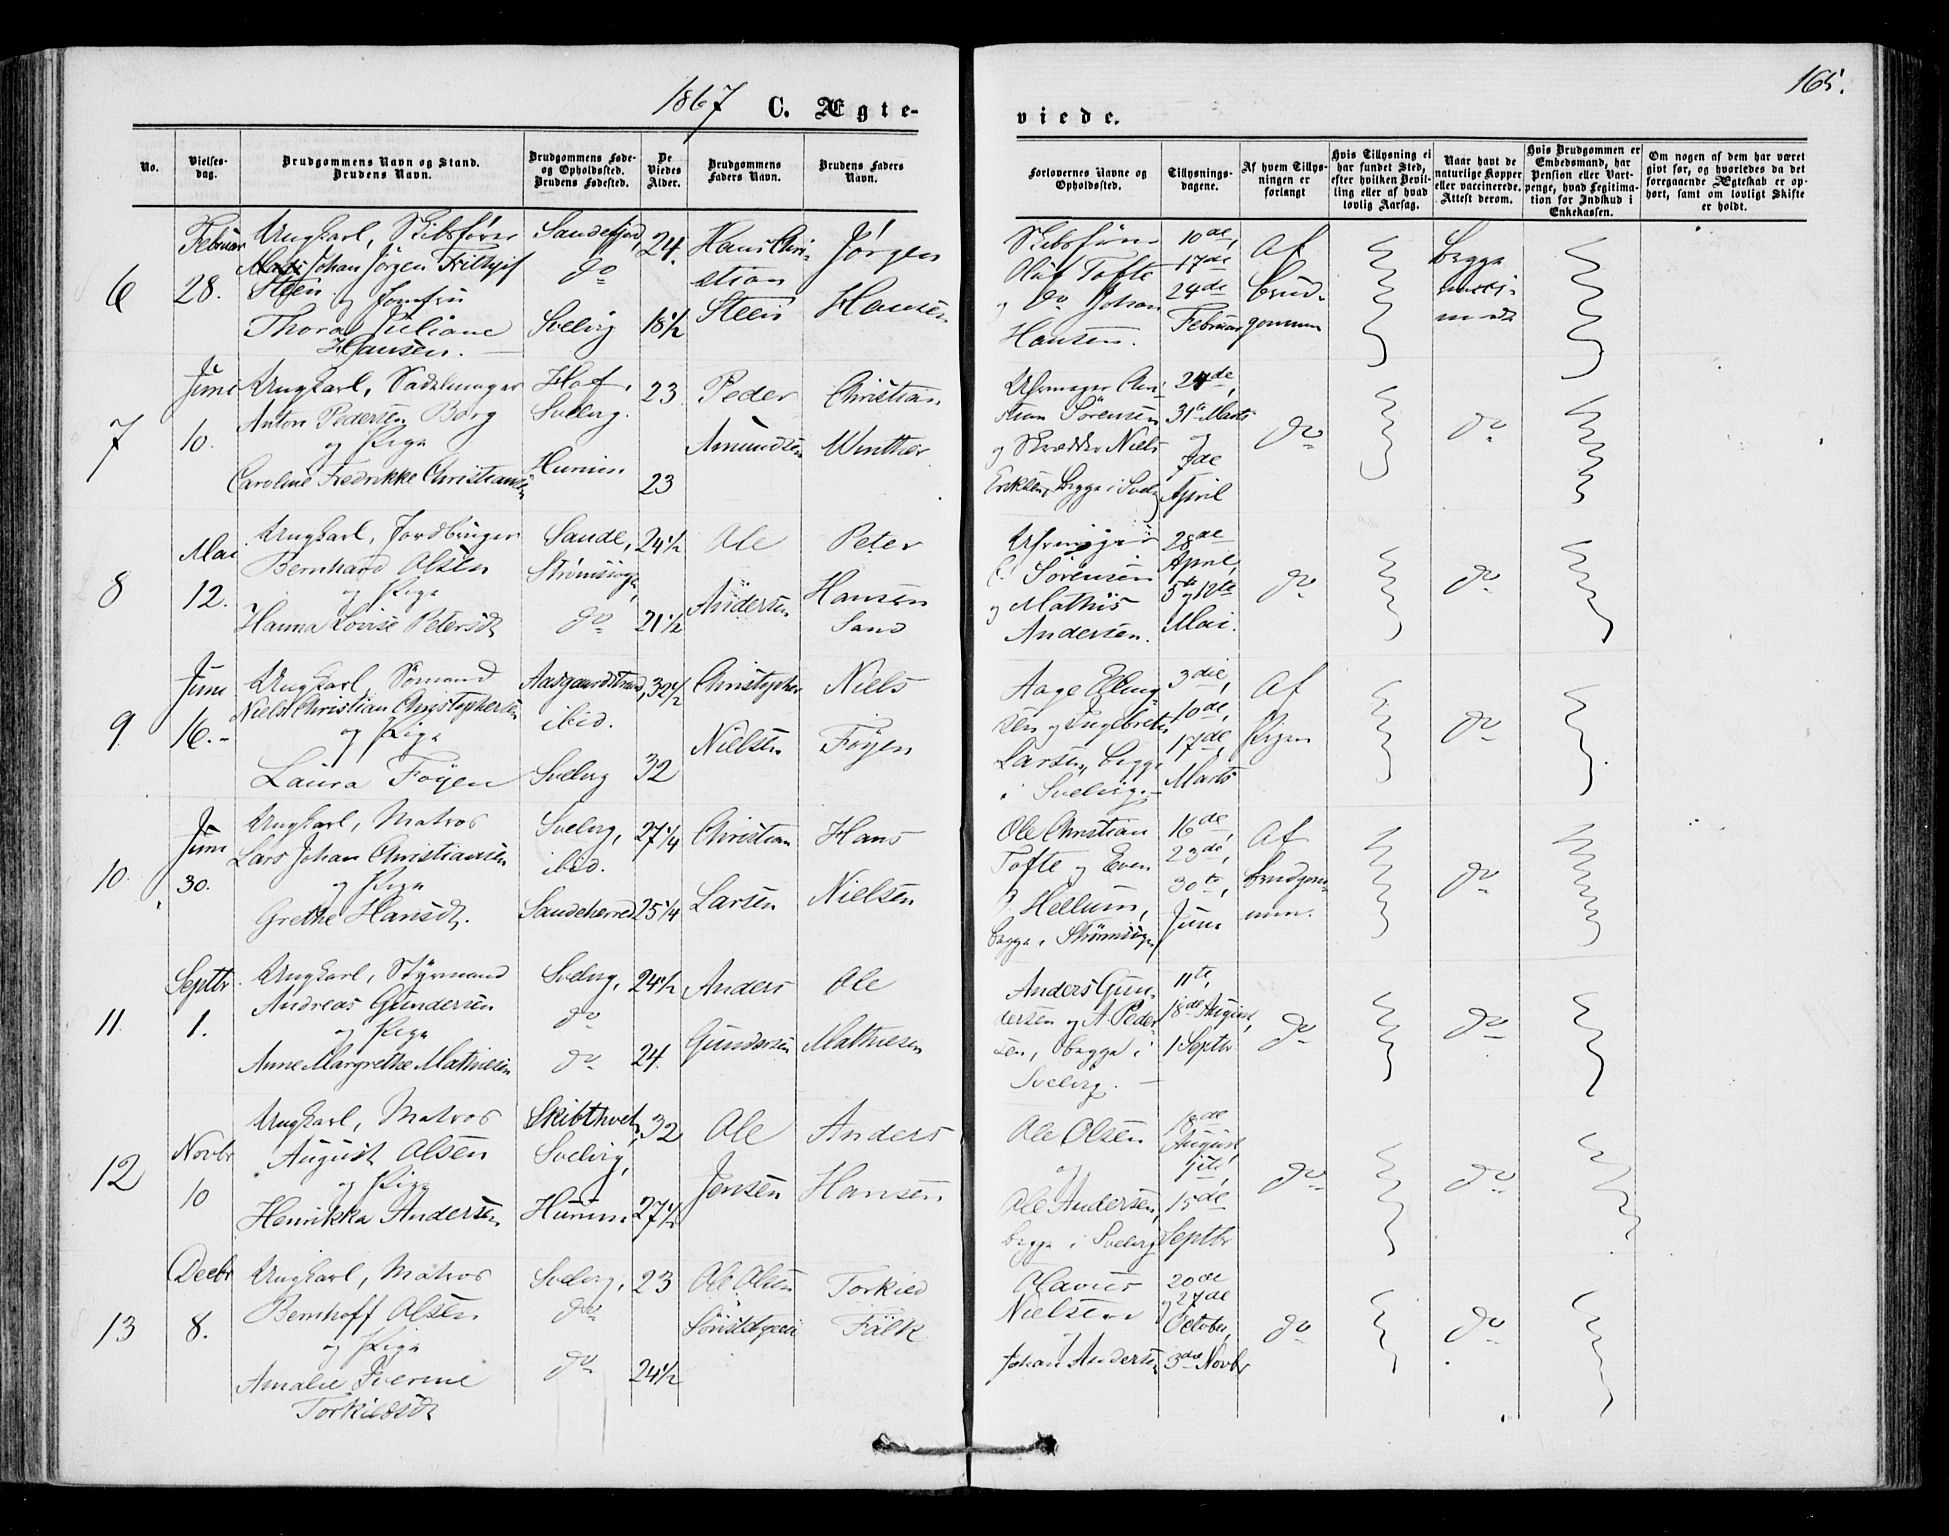 1867 C. Ægte-
viede.
165.
No.
Vielses-
dag.
Brudgommens Navn og Stand.
Brudens Navn.
Brudgommens Føde-
og Opholdssted.
Brudens Fødested.
De
Viedes
Alder.
Brudgommens
Faders Navn.
Brudens Faders
Navn.
Forlovernes Navne og
Opholdssted.
Tillysnings-
dagene.
Af hvem Tillys-
ningen er
forlangt
Hvis Tillysning ei
har fundet Sted,
efter hvilken Bevil-
ling eller af hvad
lovlig Aarsag.
Naar havt de
naturlige Kopper
eller vaccinerede.
Attest derom.
Hvis Brudgommen er
Embedsmand, har
Pension eller Vart-
penge, hvad Legitima-
tion for Indskud i
Enkekassen.
Om nogen af dem har været
givt før, og hvorledes da det
foregaaende Ægteskab er op-
hørt, samt om lovligt Skifte
er holdt.
6
Februar
28.
Ungkarl, Skibsfører
Johan Jörgen Frithjof
Steen og Jomfru
Thora Juliane
Hansen.
Sandefjord,
do
Svelvig
24.
18½
Hans Chri-
stian
Steen
Jörgen
Hansen
Skibsfører
Oluf Tofte
og do Johan
Hansen.
10de,
17de
24de
Februar
Af
Brud-
gommen
begge
vacci-
nerede
7
Juni
10.
Ungkarl, Sadelmager
Anton Pedersen Borg
og Pige
Caroline Fredrikke Christiansdt
Hof,
Svelvig.
Hurum
23
23
Peder
Amundsen
Christian
Winther
Uhrmager Chri-
stian Sörensen
og Skrædder Niels
Eriksen, begge i Svelv
24de,
31te Marts
og
7de
April
do
do
8
Mai
12.
Ungkarl, Jordbruger
Bernhard Olsen
og Pige
Hanna Lovise Petersdt
Sande,
Strømsoge,
do
24½
21½
Ole
Andersen
Peter
Hansen
Sand
Uhrmager
C. Sörensen
og Mathis
Andersen.
28de
April,
5te og 12te
Mai.
do
do
9
Juni
16.-
Ungkarl, Sømand
Niels Christian Christophersen
og Pige
Laura Foyen
Aasgaardstrand,
ibid.
Svelvig
32½
32
Christopher
Nielsen
Niels
Foyen
Aage Elling-
sen og Engebreth
Larsen, begge
i Svelvig.
3die,
10de,
17de,
Marts
Af
Pigen
do
10
Juni
30.
Ungkarl, Matros
Lars Johan Christiansen
og Pige
Grethe Hansdt.
Svelvig,
ibid.
Sandeherred
27¼
25¼
Christian
Larsen
Hans
Nielsen
Ole Christian
Tofte og Even
P. Hellum,
begge i Strømsoge
16de,
23de,
30te,
Juni
Af
Brudgom-
men.
do
11
Septbr.
1.
Ungkarl, Styrmand
Andreas Gundersen
og Pige
Anne Margrethe Mathiesen
Svelvig,
do
do
24½
24
Anders
Gundersen
Ole
Mathiesen
Anders Gun-
dersen og A. Peder-
sen, begge i
Svelvig.
11te,
18de August,
1 Septbr
do
do
12
Novbr
10
Ungkarl, Matros
August Olsen
og Pige
Henrikka Andersen
Skibthvet,
Svelvig,
Hurum
32
27½
Ole
Jensen
Anders
Hansen
Ole Olsen
og
Ole Andersen,
begge i Svelvig
18de
August,
1ste,
15de
Septbr
do
do
13
Decbr
8.
Ungkarl, Matros
Bernhoff Olsen
og Pige
Amalie Iverine
Torkildsdt
Svelvig,
do
do
23
24½
Ole Olsen
Torkild
Falk
Olavus
Nielsen
og
Johan Andersen
20de
og 27de
October,
3die Novbr
do
do